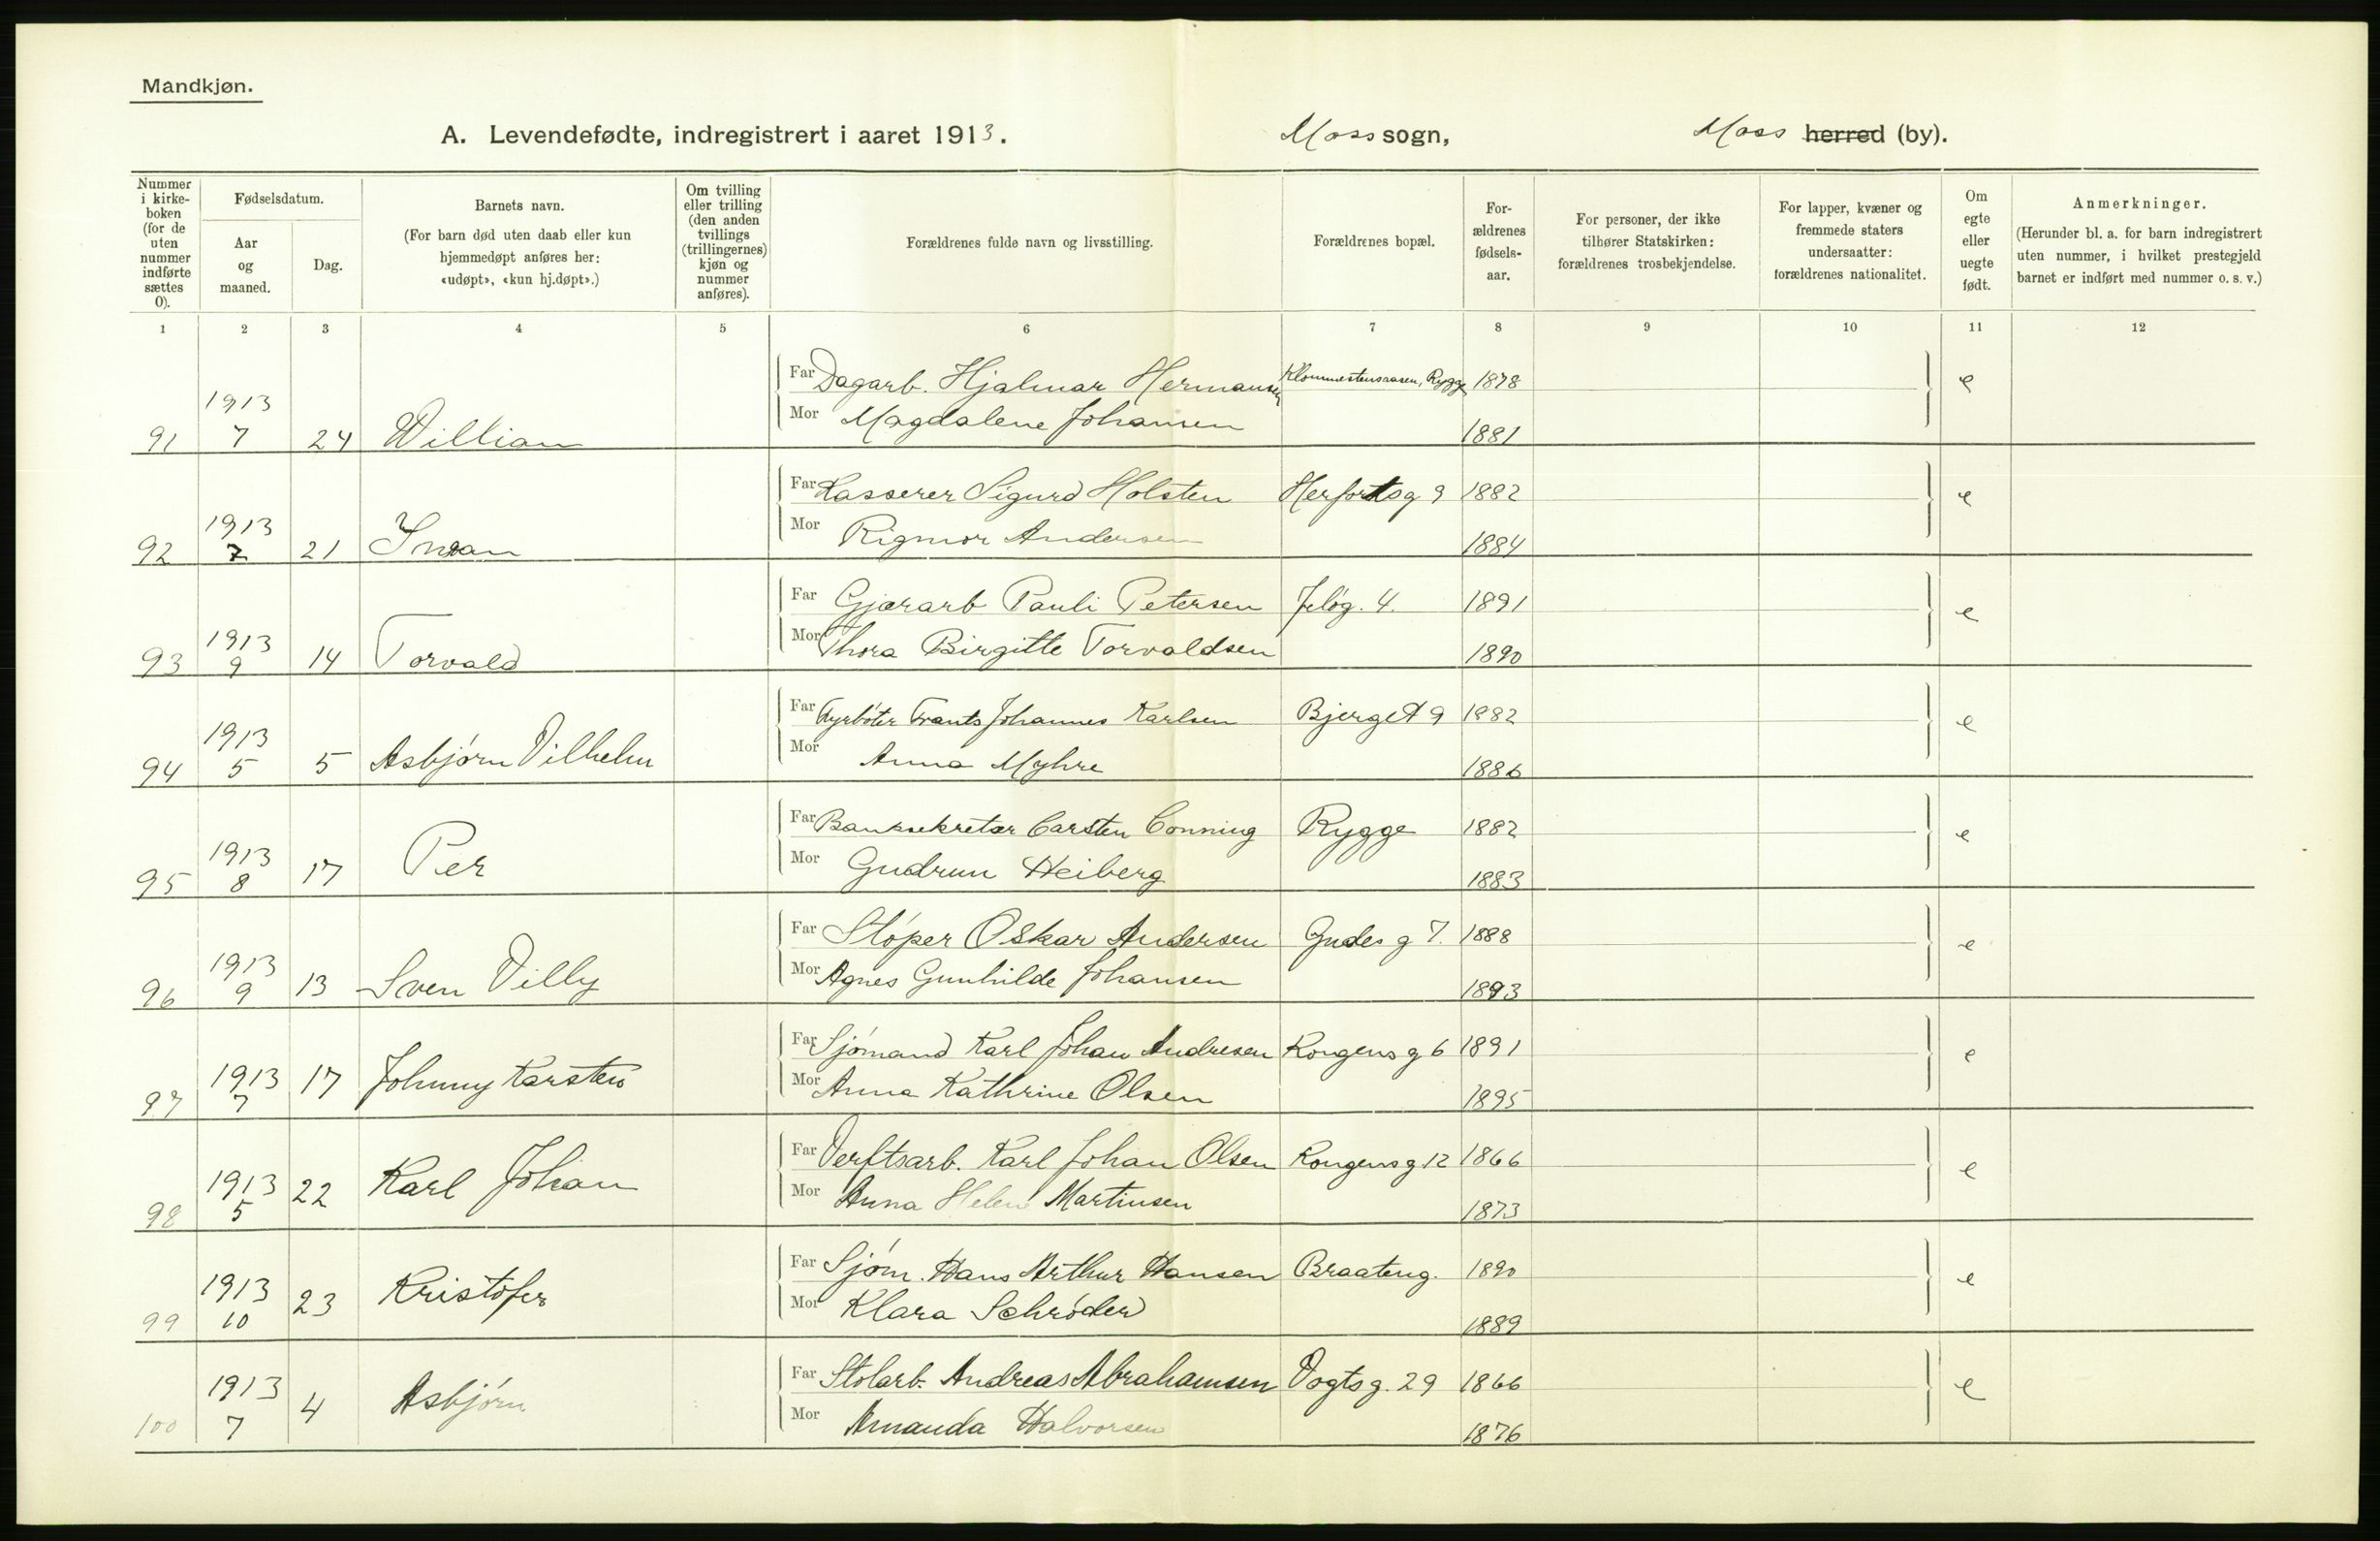 Mandkjøn.
A. Levendefødte, indregistrert i aaret 1913. Moss sogn, Moss herred (by).
Nummer i kirke-boken (for de uten nummer indførte sættes 0).
Fødselsdatum.
Aar og maaned.
Dag.
Barnets navn.
(For barn død uten daab eller kun hjemmedøpt anføres her: «udøpt», «kun hj.døpt».)
Om tvilling eller trilling (den anden tvillings (trillingernes) kjøn og nummer anføres).
Forældrenes fulde navn og livsstilling.
Forældrenes bopæl.
For-ældrenes fødsels-aar.
For personer, der ikke tilhører Statskirken: forældrenes trosbekjendelse.
For lapper, kvæner og fremmede staters undersaatter: forældrenes nationalitet.
Om egte eller uegte født.
Anmerkninger.
(Herunder bl. a. for barn indregistrert uten nummer, i hvilket prestegjeld barnet er indført med nummer o. s. v.)
1 2 3 4 5 6 7 8 9 10 11 12
Far Dagarb. Hjalmar Hermansen Rygge 1878 e
91 1913 7 24 William Mor Magdalene Johansen 1881
Far Kasserer Sigurd Holsten Herfortsg 9 1882 e
92 1913 7 21 Mor Rigmor Andersen 1884
Far Gjærarb Pauli Petersen Jeløg. 4. 1891 e
93 1913 9 14 Torvald Mor Thora Birgitte Torvaldsen 1890
Far Fyrbøter Frants Johannes Karlsen Bjerget 9 1882 e
94 1913 5 5 Asbjørn Vilhelm Mor Anna Myhre 1886
Far Banksekretær Carsten Conning Rygge 1882 e
95 1913 8 17 Per Mor Gudrun Heiberg 1883
Far Støper Oskar Andersen Gudes g 7. 1888 e
96 1913 9 13 Sven Villy Mor Agnes Gunhilde Johansen 1893
Far Sjømand Karl Johan Andresen Kongens g 6 1891 e
97 1913 7 17 Johnny Karsten Mor Anna Kathrine Olsen 1895
Far Verftsarb. Karl Johan Olsen Kongens g 12 1866 e
98 1913 5 22 Karl Johan Mor Anna Helene Martinsen 1873
Far Sjøm. Hans Arthur Hansen Braateng. 1890 e
99 1913 10 23 Kristofer Mor Klara Schrøder 1889
Far Stolarb. Andreas Abrahamsen Vogts g. 29 1866 e
100 1913 7 4 Asbjørn Mor Amanda Halvorsen 1876